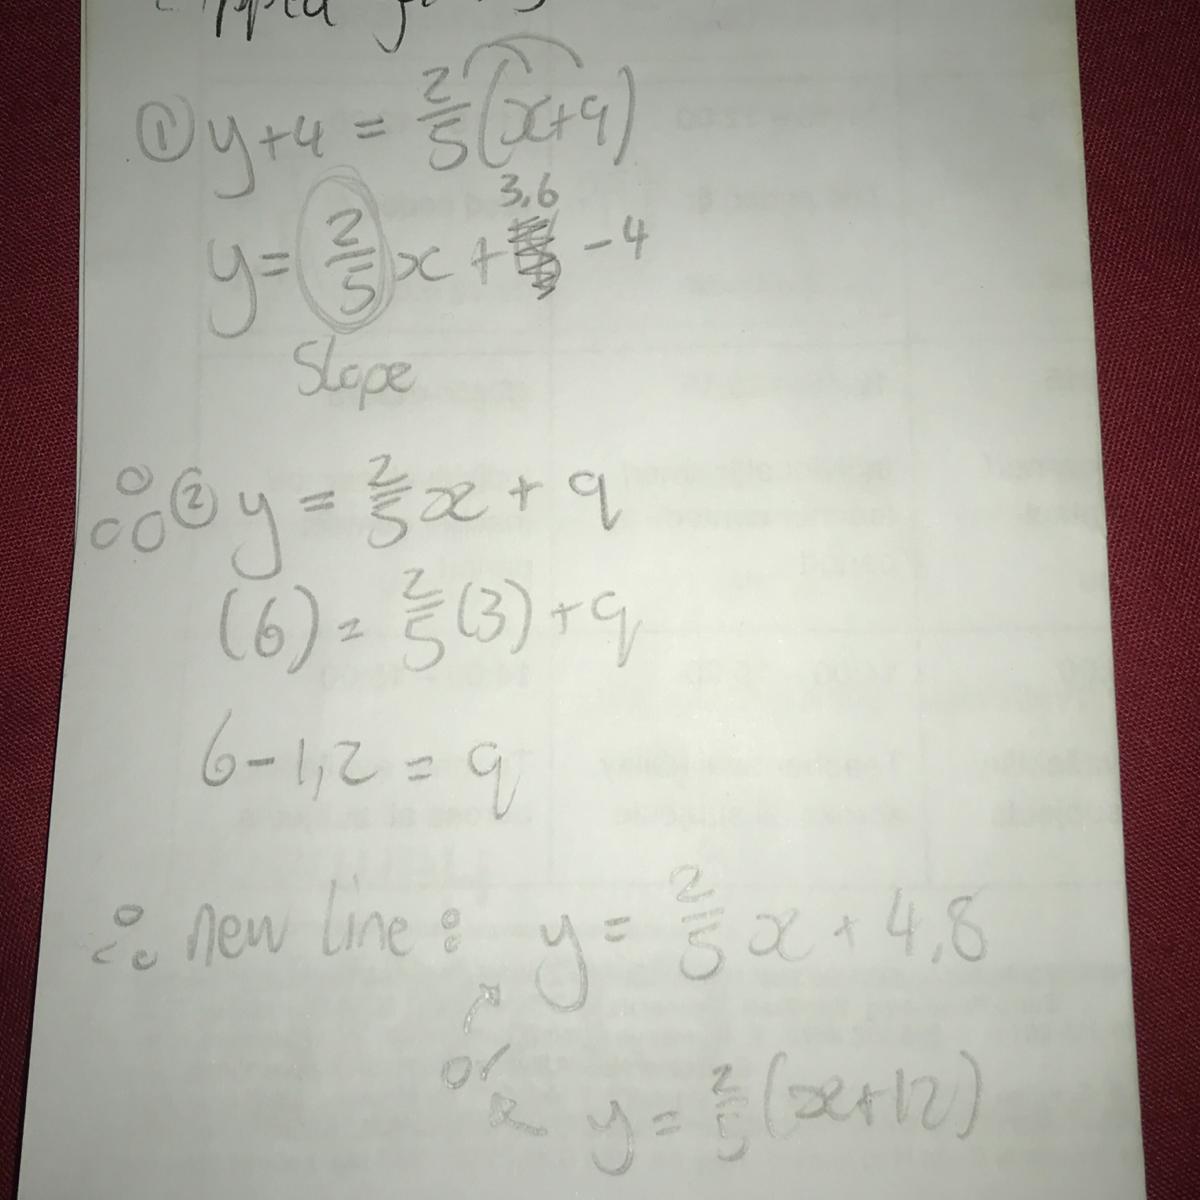 ① y+4 = 2/5 (x+9)
y = 2/5 x + 3,6 - 4
Slope
∴ ② y = 2/5 x + q
(6) = 2/5 (3) + q
6 - 1,2 = q
∴ new line: y = 2/5 x + 4,8
or
y = 2/5 (x+12)